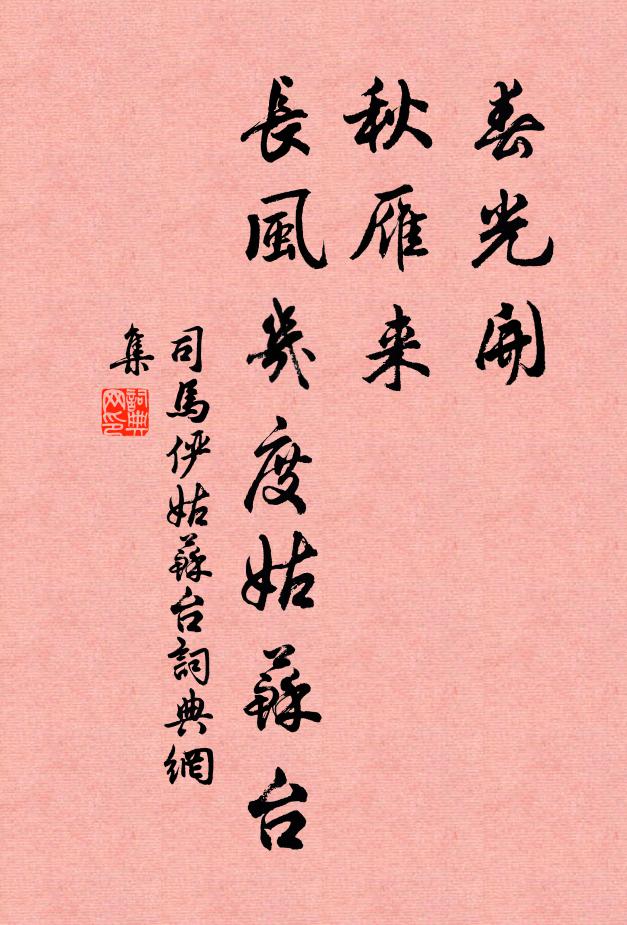 春光開
秋雁来
長風幾度姑蘇台
司馬伊姑蘇台詞典網
集
詞典網印